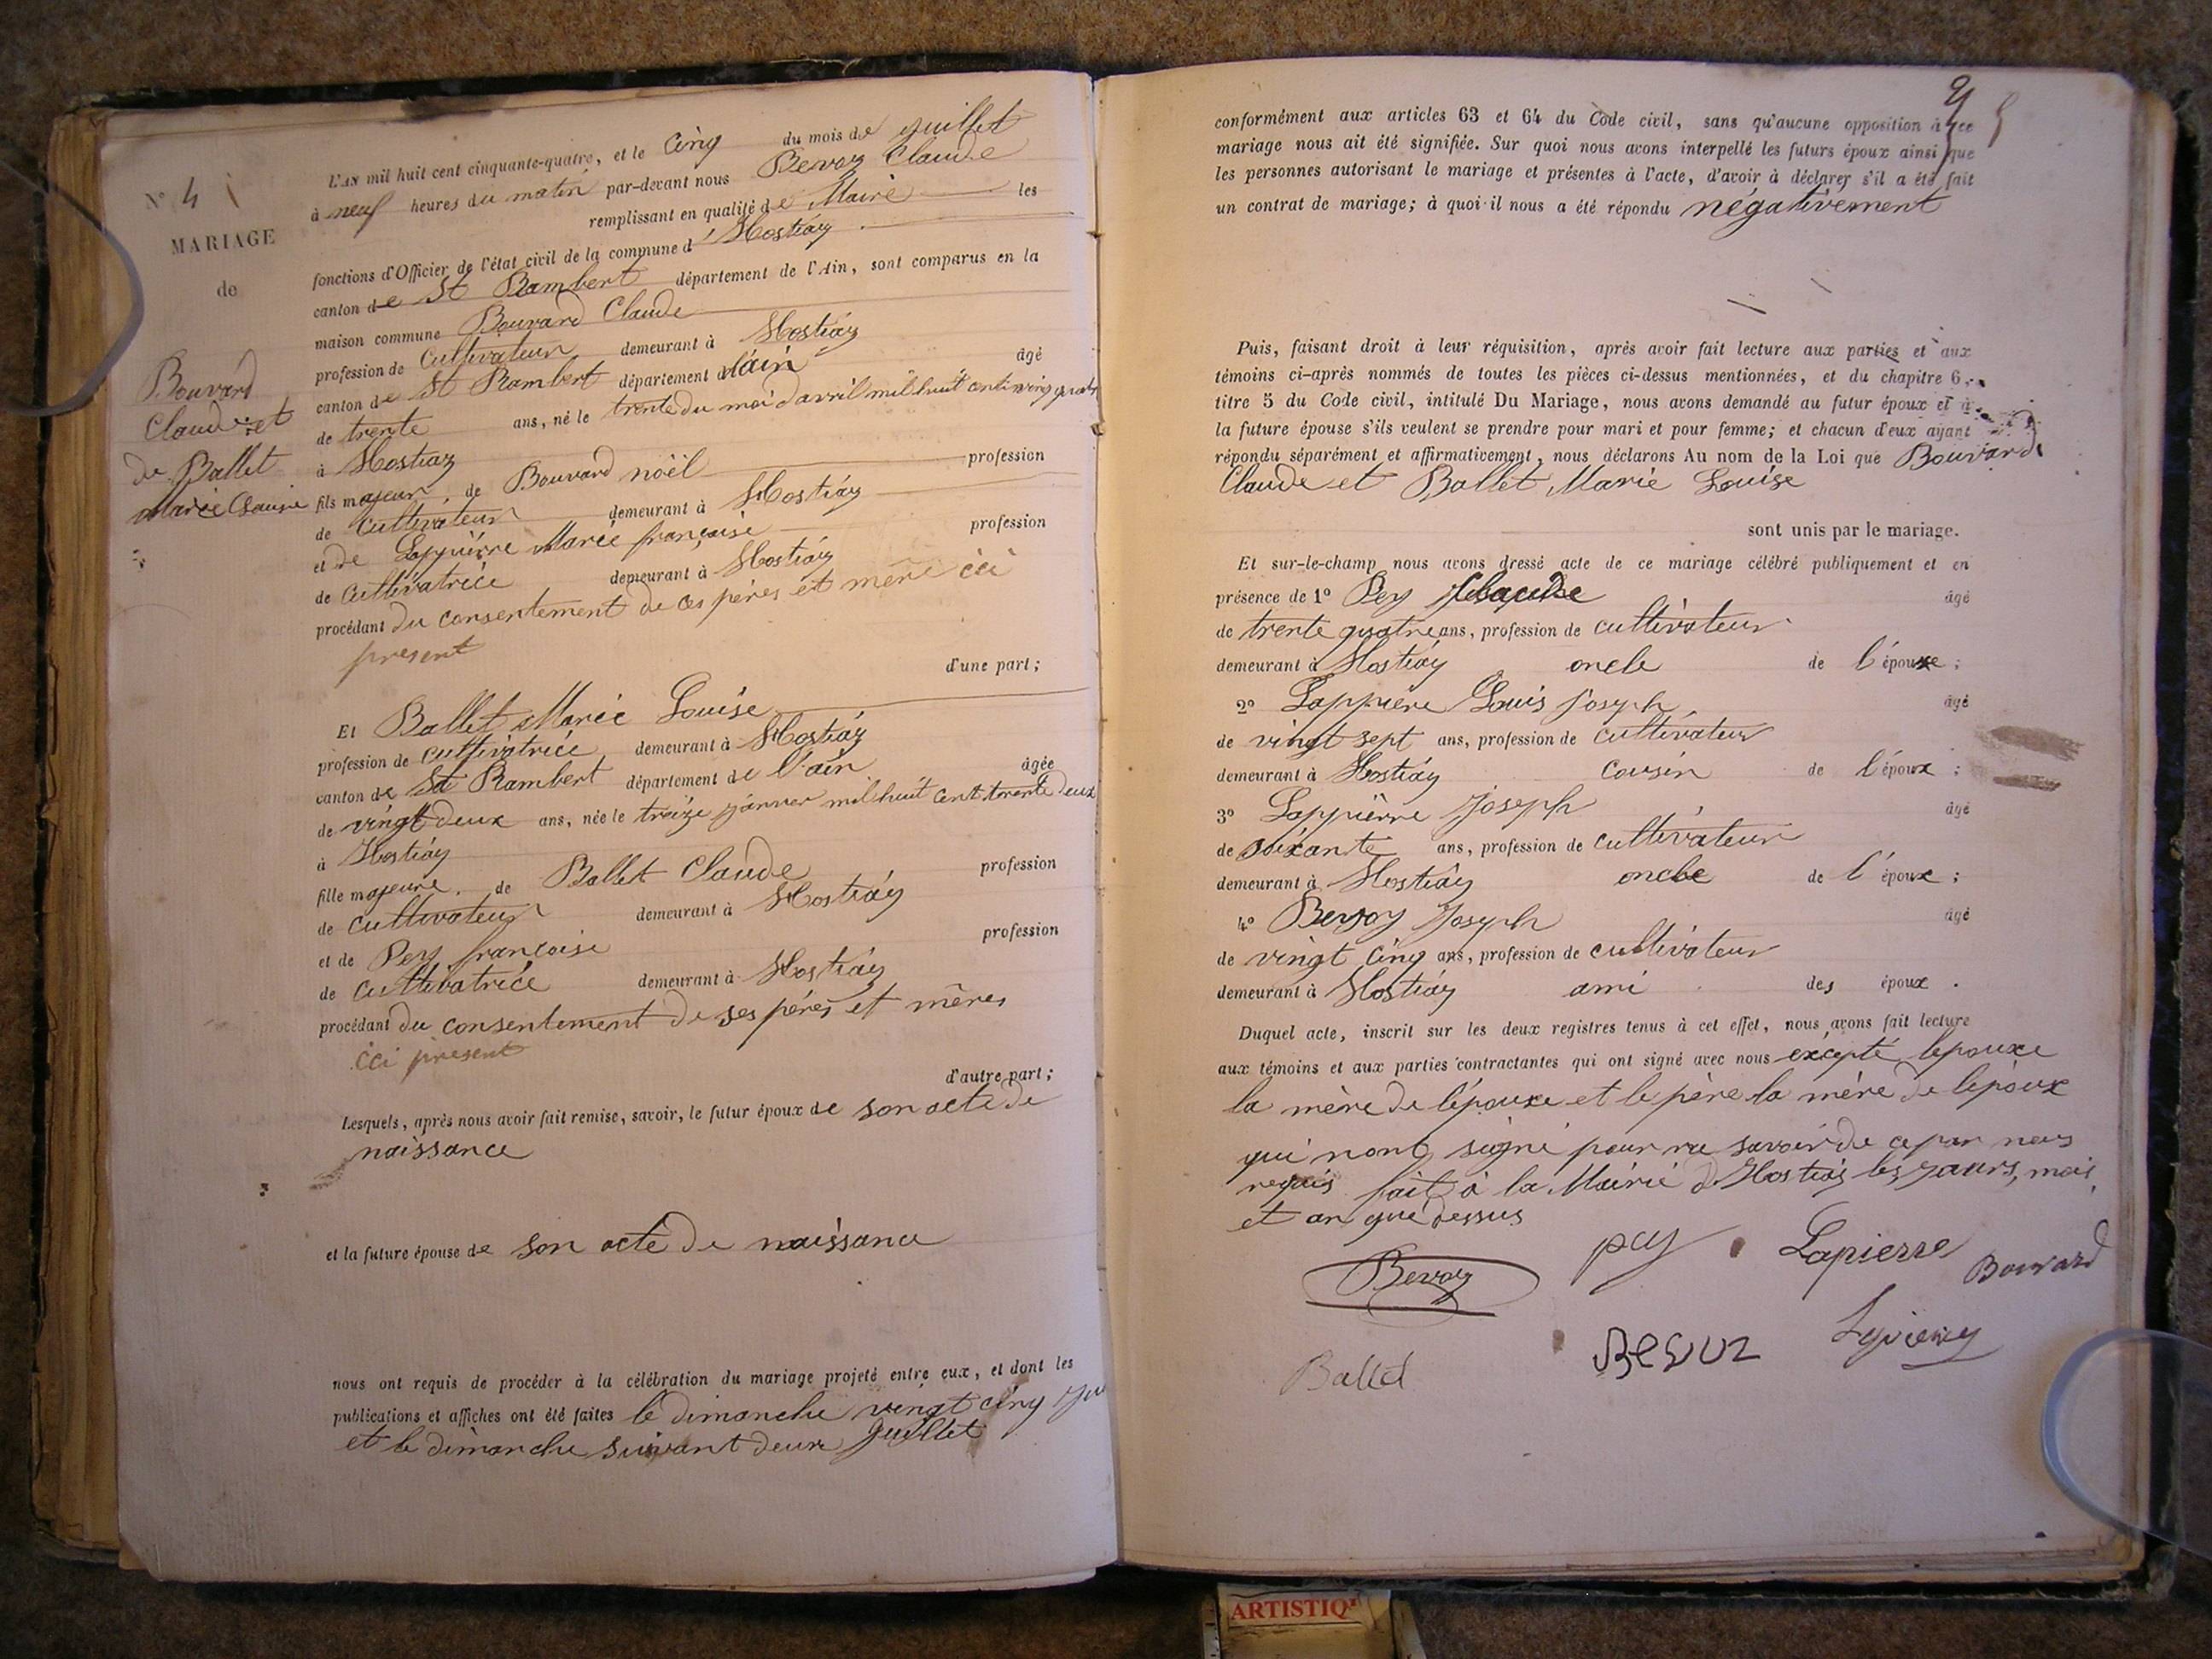 N° 4
MARIAGE
de
Bouvard
Claude et
de Ballet
Marie Louise
L'AN mil huit cent cinquante-quatre, et le cinq du mois de juillet
à neuf heures du matin par-devant nous Bevoz Claude
remplissant en qualité de Maire les
fonctions d'Officier de l'état civil de la commune d'Hostiaz
canton de St Rambert département de l'Ain, sont comparus en la
maison commune Bouvard Claude
profession de Cultivateur demeurant à Hostiaz
canton de St Rambert département de l'ain âgé
de trente ans, né le trente du moi d'avril mil huit cent
à Hostiaz
fils majeur de Bouvard noël profession
de Cultivateur demeurant à Hostiaz
et de Lappierre Marie françoise profession
de Cultivatrice demeurant à Hostiaz
procédant du consentement de ces pères et mère ici
present
d'une part;
Et Ballet Marie Louise
profession de cultivatrice demeurant à Hostiaz
canton de St Rambert département de l'ain âgée
de vingt deux ans, née le treize janvier mil huit cent trente deux
à Hostiaz
fille majeure de Ballet Claude profession
de cultivateur demeurant à Hostiaz
et de Pey françoise profession
de cultivatrice demeurant à Hostiaz
procédant du consentement de ses pères et mères
ici present
d'autre part;
Lesquels, après nous avoir fait remise, savoir, le futur époux de son acte de
naissance
et la future épouse de son acte de naissance
nous ont requis de procéder à la célébration du mariage projeté entre eux, et dont les
publications et affiches ont été faites le dimanche vingt cinq
et le dimanche suivant deux Juillet
conformément aux articles 63 et 64 du Code civil, sans qu'aucune opposition à ce
mariage nous ait été signifiée. Sur quoi nous avons interpellé les futurs époux ainsi que
les personnes autorisant le mariage et présentes à l'acte, d'avoir à déclarer s'il a été fait
un contrat de mariage; à quoi il nous a été répondu négativement
Puis, faisant droit à leur réquisition, après avoir fait lecture aux parties et aux
témoins ci-après nommés de toutes les pièces ci-dessus mentionnées, et du chapitre 6,
titre 5 du Code civil, intitulé Du Mariage, nous avons demandé au futur époux et à
la future épouse s'ils veulent se prendre pour mari et pour femme; et chacun d'eux ayant
répondu séparément et affirmativement, nous déclarons Au nom de la Loi que Bouvard
Claude et Ballet Marie Louise
sont unis par le mariage.
Et sur-le-champ nous avons dressé acte de ce mariage célébré publiquement et en
présence de 1° Pey Claude âgé
de trente quatre ans, profession de cultivateur
demeurant à Hostiaz oncle de l'épouse;
2° Lappierre Louis Joseph âgé
de vingt sept ans, profession de cultivateur
demeurant à Hostiaz cousin de l'époux;
3° Lappierre Joseph âgé
de soixante ans, profession de cultivateur
demeurant à Hostiaz oncle de l'époux;
4° Bevoz Joseph âgé
de vingt cinq ans, profession de cultivateur
demeurant à Hostiaz ami des époux.
Duquel acte, inscrit sur les deux registres tenus à cet effet, nous avons fait lecture
aux témoins et aux parties contractantes qui ont signé avec nous excepté l'epouse
la mère de l'épouse et le père la mère de l'époux
qui n'ont signé pour ne savoir de ce par nous
requis fait à la Mairie d'Hostiaz les jours, mois
et an que dessus
Bevoz pey Lapierre Bouvard
Ballet
ARTISTIQ